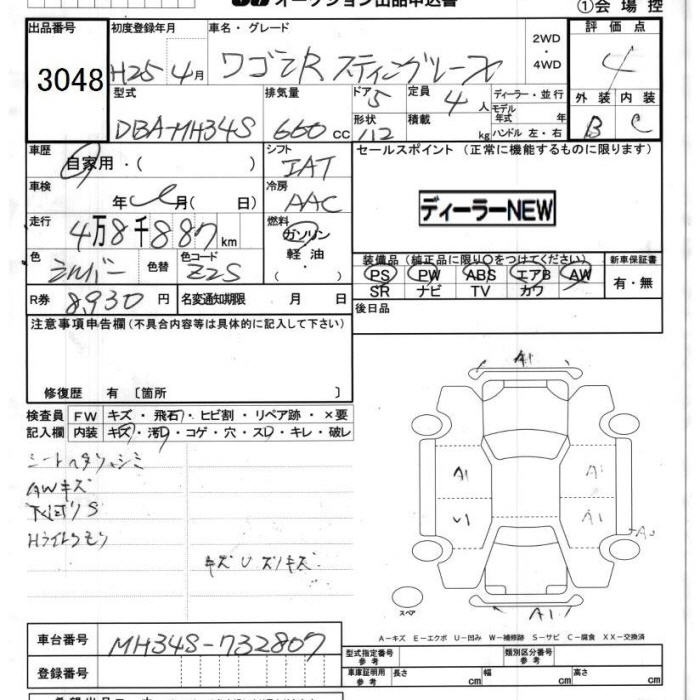 オークション出品申込書
①会場控
出品番号
3048
初度登録年月
H25年4月
車名・グレード
ワゴンR スティングレーX
2WD
・
4WD
評価点
4
外装 内装
B C
型式
DBA-MH34S
排気量
660cc
ドア
5
形状
定員
4人
積載
kg
ディーラー・並行
モデル
年式 年
ハンドル 左・右
車歴
自家用・( )
車検
年 月( 日)
走行
4万8千887km
色
シルバー
色替
色コード
Z2S
R券
8,930円
名変通知期限 月 日
シフト
IAT
冷房
AAC
燃料
ガソリン
軽油・
( )
セールスポイント(正常に機能するものに限ります)
ディーラーNEW
装備品(純正品に限り○をつけてください)
PS PW ABS エアB AW
SR ナビ TV カワ
新車保証書
有・無
後日品
注意事項申告欄(不具合内容等は具体的に記入して下さい)
修復歴 有 〔箇所 〕
検査員
記入欄
FW キズ・飛石・ヒビ割・リペア跡・×要
内装 キズ・汚・コゲ・穴・スレ・キレ・破レ
AWキズ
下回りS
キズUスリキズ
A1
A1
A1
U1
A1
A1
スペア
A-キズ E-エクボ U-凹み W-補修跡 S-サビ C-腐食 XX-交換済
車台番号
MH34S-732807
登録番号
型式指定番号
参考
類別区分番号
参考
車庫証明用
参考
長さ cm 幅 cm 高さ cm